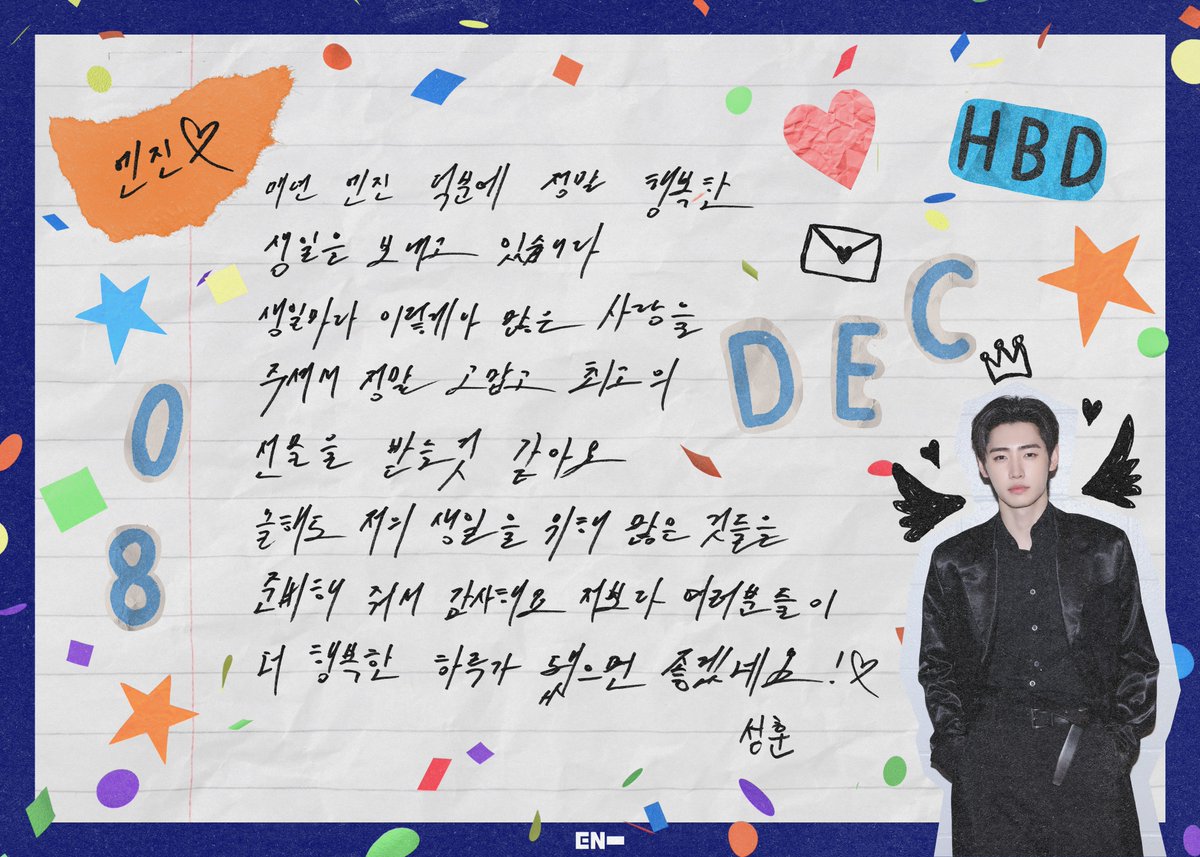 엔진♡
HBD
매년 엔진 덕분에 정말 행복한
생일을 보내고 있습니다
생일마다 이렇게나 많은 사랑을
주셔서 정말 고맙고 최고의
선물을 받는것 같아요
올해도 저의 생일을 위해 많은 것들을
준비해 줘서 감사해요 저보다 여러분들이
더 행복한 하루가 됐으면 좋겠네요!♡
성훈
DEC
08
EN-